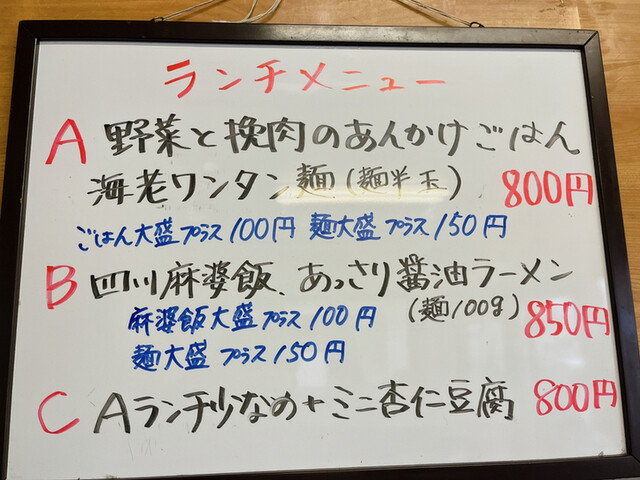 ランチメニュー
A 野菜と挽肉のあんかけごはん
海老ワンタン麺(麺半玉) 800円
ごはん大盛プラス100円 麺大盛プラス150円
B 四川麻婆飯、あっさり醤油ラーメン
麻婆飯大盛プラス100円 (麺100g) 850円
麺大盛プラス150円
C Aランチ少なめ+ミニ杏仁豆腐 800円